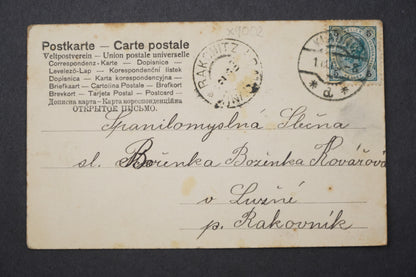 XV/002
Postkarte — Carte postale
Weltpostverein — Union postale universelle
Correspondenz-Karte — Dopisnice
Levelező-Lap — Korespondenční lístek
Dopisnica — Karta korespondencyjna
Briefkaart — Cartolina Postale — Brefkort
Brevkort — Tarjeta Postal — Postcard
Дописна карта — Карта кореспонденційна
ОТКРЫТОЕ ПИСЬМО.
RAKONITZ
5 5
* d *
Spanilomyslna Slečna
sl. Boženka Boženka Kovářová
v Lužné
p. Rakovník